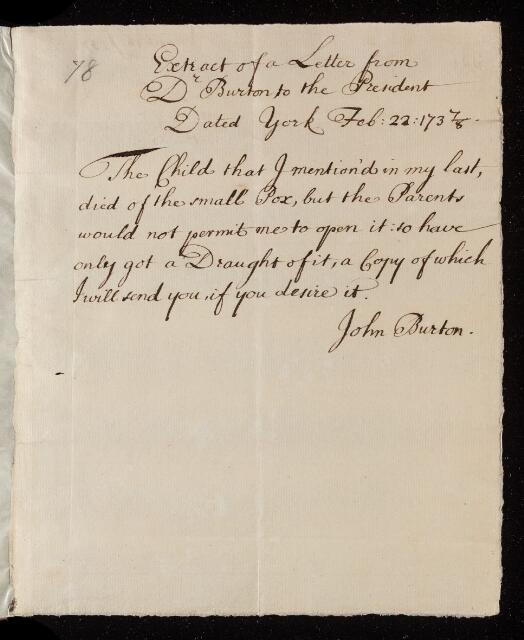 78
Extract of a Letter from
Dr Burton to the President
Dated York Feb: 22: 173 7/8.
The Child that I mention'd in my last,
died of the small Pox, but the Parents
would not permit me to open it: so have
only got a Draught of it, a Copy of which
I will send you, if you desire it.
John Burton.